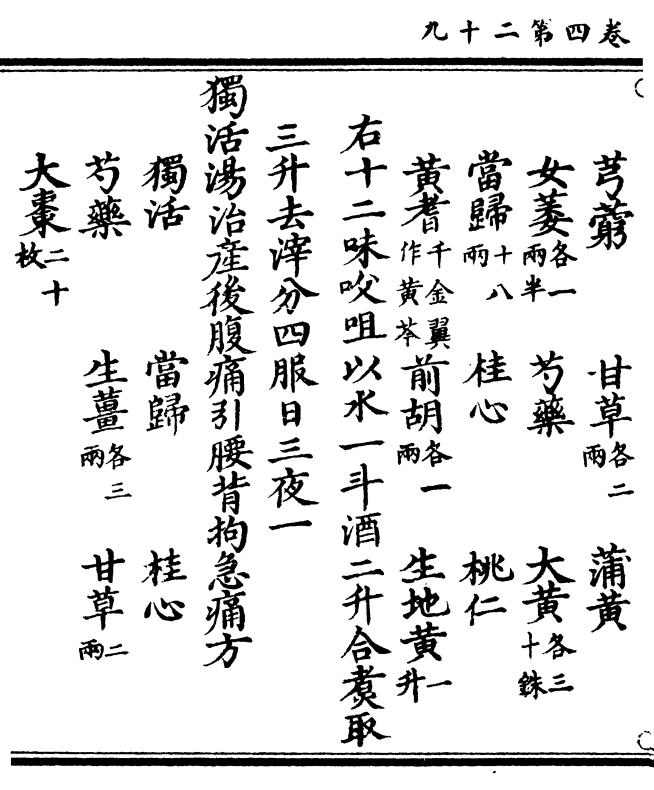 卷四第二十九
芎藭 甘草各二兩 蒲黃
女萎各一兩半 芍藥 大黃各三十銖
當歸十八兩 桂心 桃仁
黃耆千金翼作黃芩 前胡各一兩 生地黃一升
右十二味㕮咀以水一斗酒二升合煑取
三升去滓分四服日三夜一
獨活湯治產後腹痛引腰背拘急痛方
獨活 當歸 桂心
芍藥 生薑各三兩 甘草二兩
大棗二十枚